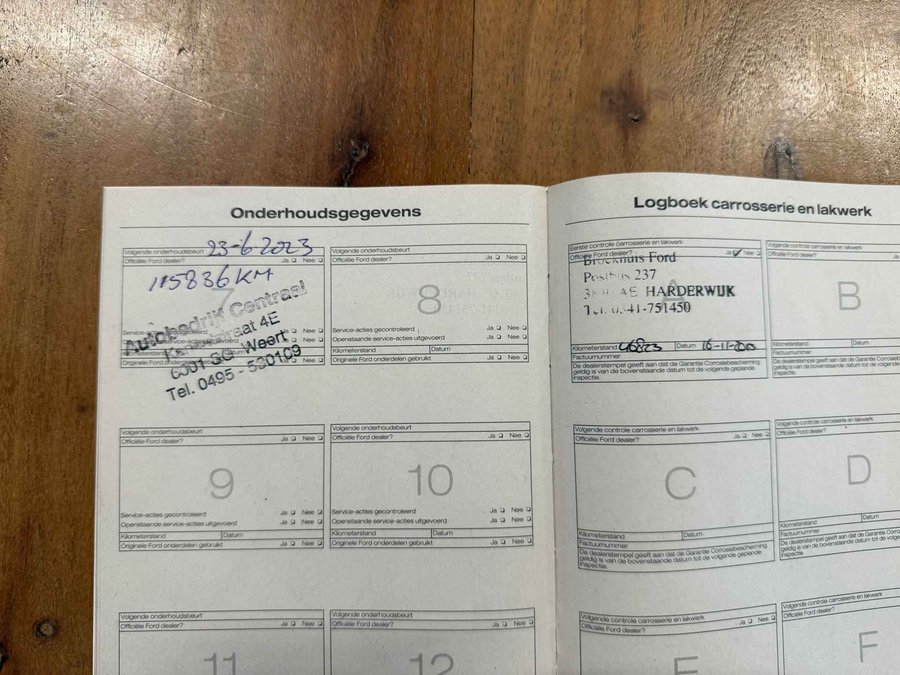 Onderhoudsgegevens
Volgende onderhoudsbeurt 23-6-2023
Officiële Ford dealer? Ja Nee
115836 KM
7
Autobedrijf Centraal
straat 4E
Weert
Tel. 0495 - 530109
Service-acties Ja Nee
Ja Nee
Ja Nee
Volgende onderhoudsbeurt
Officiële Ford dealer? Ja Nee
8
Service-acties gecontroleerd Ja Nee
Openstaande service-acties uitgevoerd Ja Nee
Kilometerstand Datum
Originele Ford onderdelen gebruikt Ja Nee
Volgende onderhoudsbeurt
Officiële Ford dealer? Ja Nee
9
Service-acties gecontroleerd Ja Nee
Openstaande service-acties uitgevoerd Ja Nee
Kilometerstand Datum
Originele Ford onderdelen gebruikt Ja Nee
Volgende onderhoudsbeurt
Officiële Ford dealer? Ja Nee
10
Service-acties gecontroleerd Ja Nee
Openstaande service-acties uitgevoerd Ja Nee
Kilometerstand Datum
Originele Ford onderdelen gebruikt Ja Nee
Volgende onderhoudsbeurt
Officiële Ford dealer? Ja Nee
11
Volgende onderhoudsbeurt
Officiële Ford dealer? Ja Nee
12
Logboek carrosserie en lakwerk
Eerste controle carrosserie en lakwerk
Officiële Ford dealer? Ja Nee
A
Broekhuis Ford
Postbus 237
HARDERWIJK
Tel. 0341-751450
Kilometerstand 46823 Datum
Factuurnummer
De dealerstempel geeft aan dat de Garantie Corrosiebescherming
geldig is van de bovenstaande datum tot de volgende geplande
inspectie.
Volgende controle carrosserie en lakwerk
Officiële Ford dealer?
B
Kilometerstand
Factuurnummer
De dealerstempel geeft aan dat de Garantie
geldig is van de bovenstaande datum tot de
inspectie.
Volgende controle carrosserie en lakwerk
Officiële Ford dealer? Ja Nee
C
Kilometerstand Datum
Factuurnummer
De dealerstempel geeft aan dat de Garantie Corrosiebescherming
geldig is van de bovenstaande datum tot de volgende geplande
inspectie.
Volgende controle carrosserie en lakwerk
Officiële Ford dealer?
D
Kilometerstand Datum
Factuurnummer
De dealerstempel geeft aan dat de Garantie
geldig is van de bovenstaande datum tot de
inspectie.
Volgende controle carrosserie en lakwerk
Officiële Ford dealer? Ja Nee
E
Volgende controle carrosserie en lakwerk
Officiële Ford dealer?
F